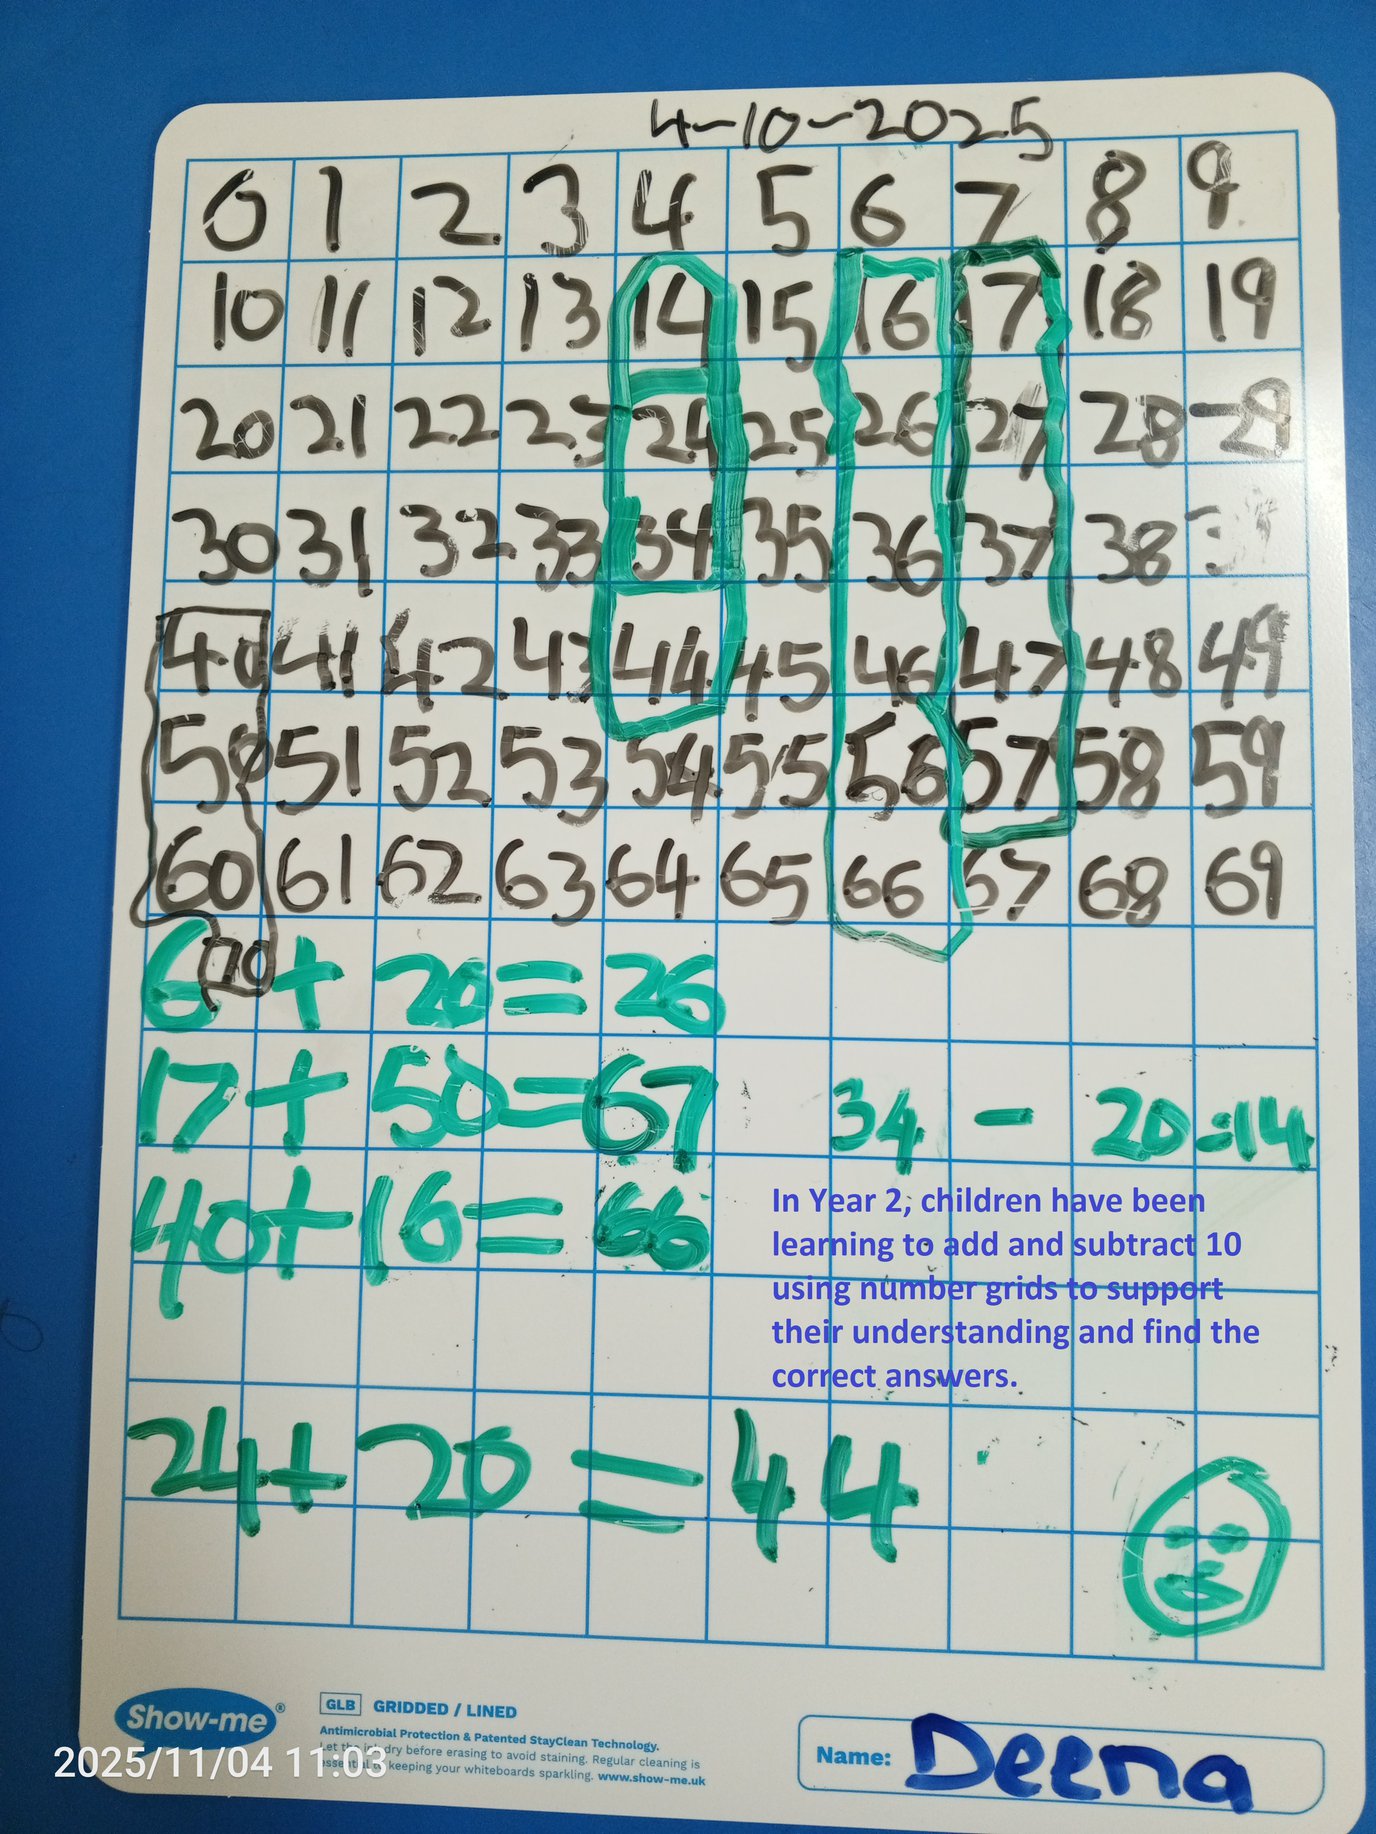 4-10-2025
0 1 2 3 4 5 6 7 8 9
10 11 12 13 14 15 16 17 18 19
20 21 22 23 24 25 26 27 28 29
30 31 32 33 34 35 36 37 38
40 41 42 43 44 45 46 47 48 49
50 51 52 53 54 55 56 57 58 59
60 61 62 63 64 65 66 67 68 69
70
6 + 20 = 26
17 + 50 = 67
34 - 20 = 14
40 + 16 = 66
In Year 2, children have been
learning to add and subtract 10
using number grids to support
their understanding and find the
correct answers.
24 + 20 = 44
Show-me®
GLB GRIDDED / LINED
Antimicrobial Protection & Patented StayClean Technology.
Let the ink dry before erasing to avoid staining. Regular cleaning is
essential to keeping your whiteboards sparkling. www.show-me.uk
2025/11/04 11:03
Name: Deena